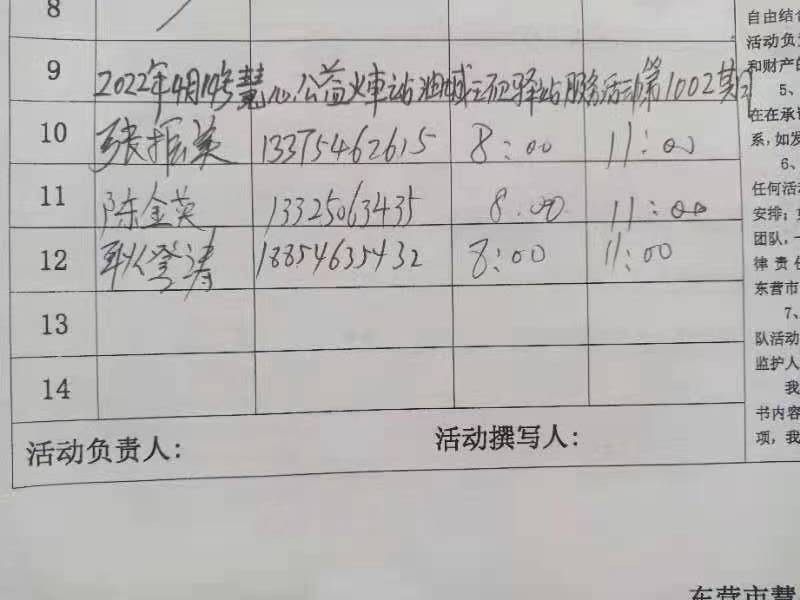 8
自由结合
活动负责
和财产的
9 2022年4月19号慧心公益火車站油城之砚驿站服务活动第1002期
5、
在在承认
系,如发
10 张振英 13375462615 8:00 11:00
6、
任何活动
11 陈金英 13325063435 8.00 11:00
安排;
团队,一
12 耿登涛 18854635432 8:00 11:00
律责任
东营市
13
7、
队活动
14
监护人
我
书内容
活动负责人: 活动撰写人:
项,我
东营市慧